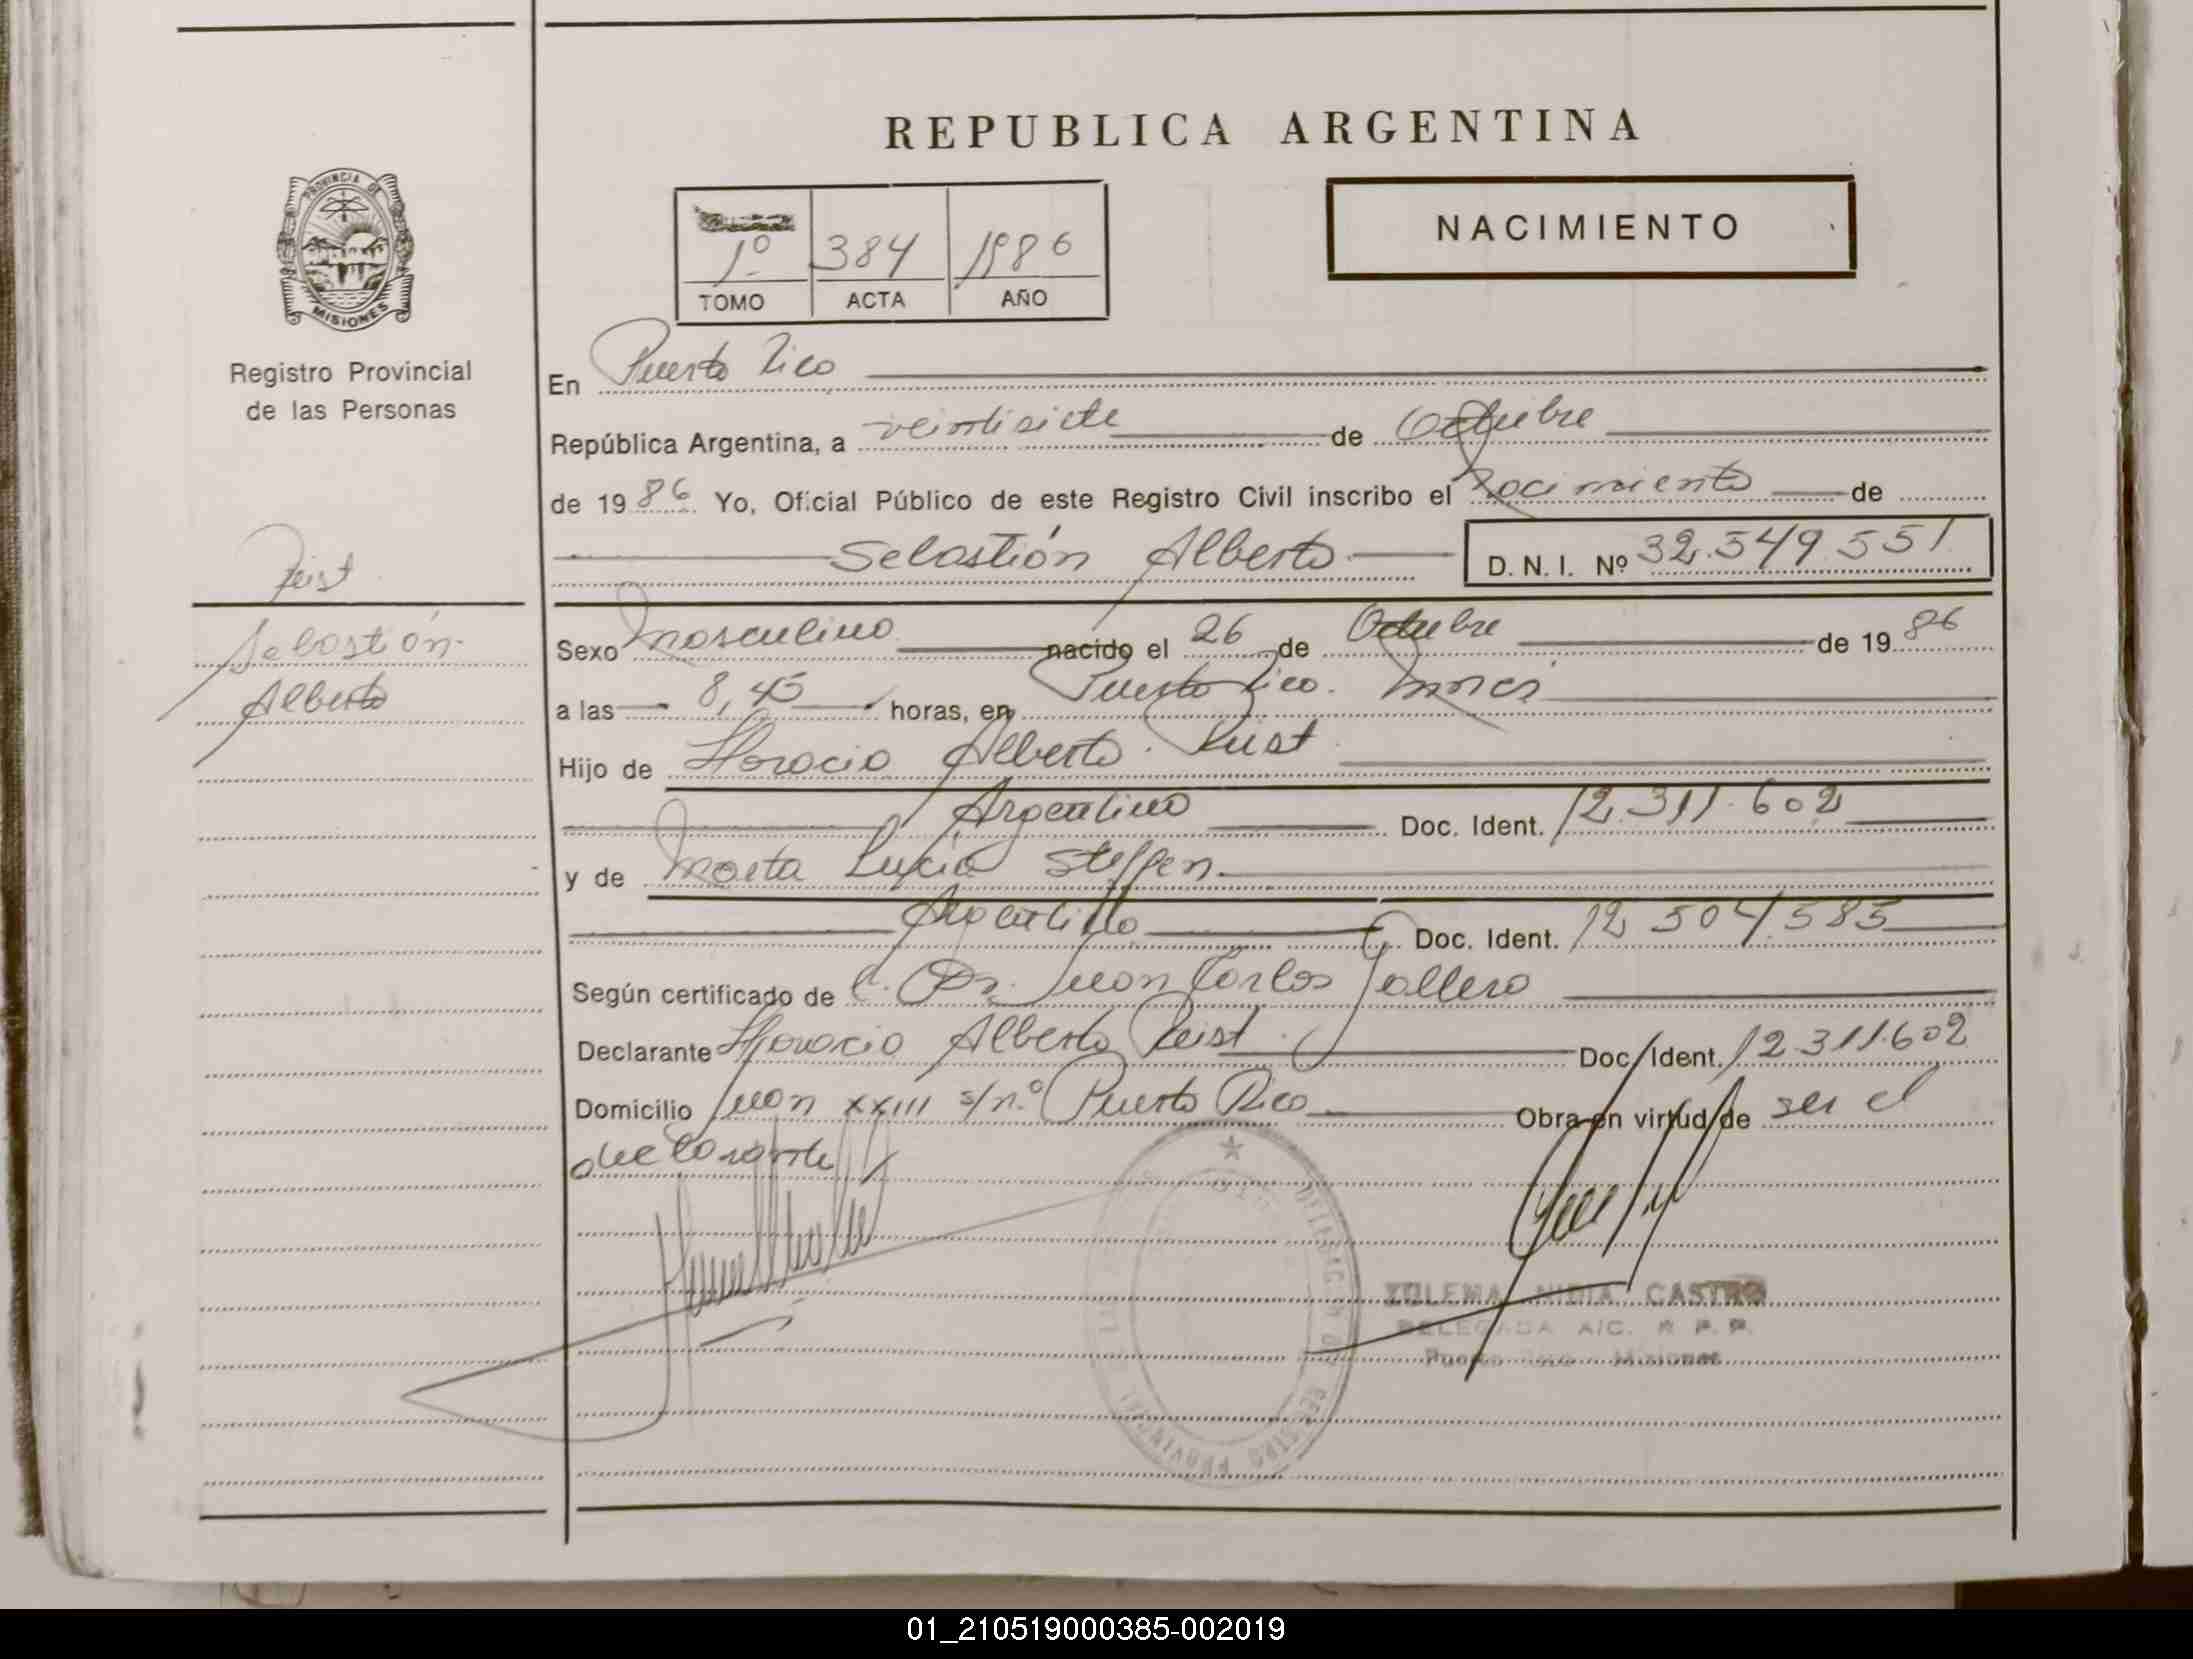 REPUBLICA ARGENTINA
PROVINCIA DE
MISIONES
Registro Provincial
de las Personas
1º 384 1986
TOMO ACTA AÑO
NACIMIENTO
En Puerto Rico
República Argentina, a veintisiete de Octubre
de 19 86 Yo, Oficial Público de este Registro Civil inscribo el Nacimiento de
Sebastián Alberto D. N. I. Nº 32.549.551
Sebastián
Alberto
Sexo Masculino nacido el 26 de Octubre de 19 86
a las 8,45 horas, en Puerto Rico.
Hijo de Horacio Alberto
Argentino Doc. Ident. 12.311.602
y de Marta Lucía Steffen
Argentina Doc. Ident. 12.504.585
Según certificado de Dr. Juan Carlos Gallero
Declarante Horacio Alberto Doc. Ident. 12.311.602
Domicilio Juan XXIII s/n.º Puerto Rico Obra en virtud de ser el
declarante
DELEGACION REGISTRO PROVINCIAL
ZULEMA NIDIA CASTRO
DELEGADA A/C. R. P. P.
Puerto Rico - Misiones
01_210519000385-002019